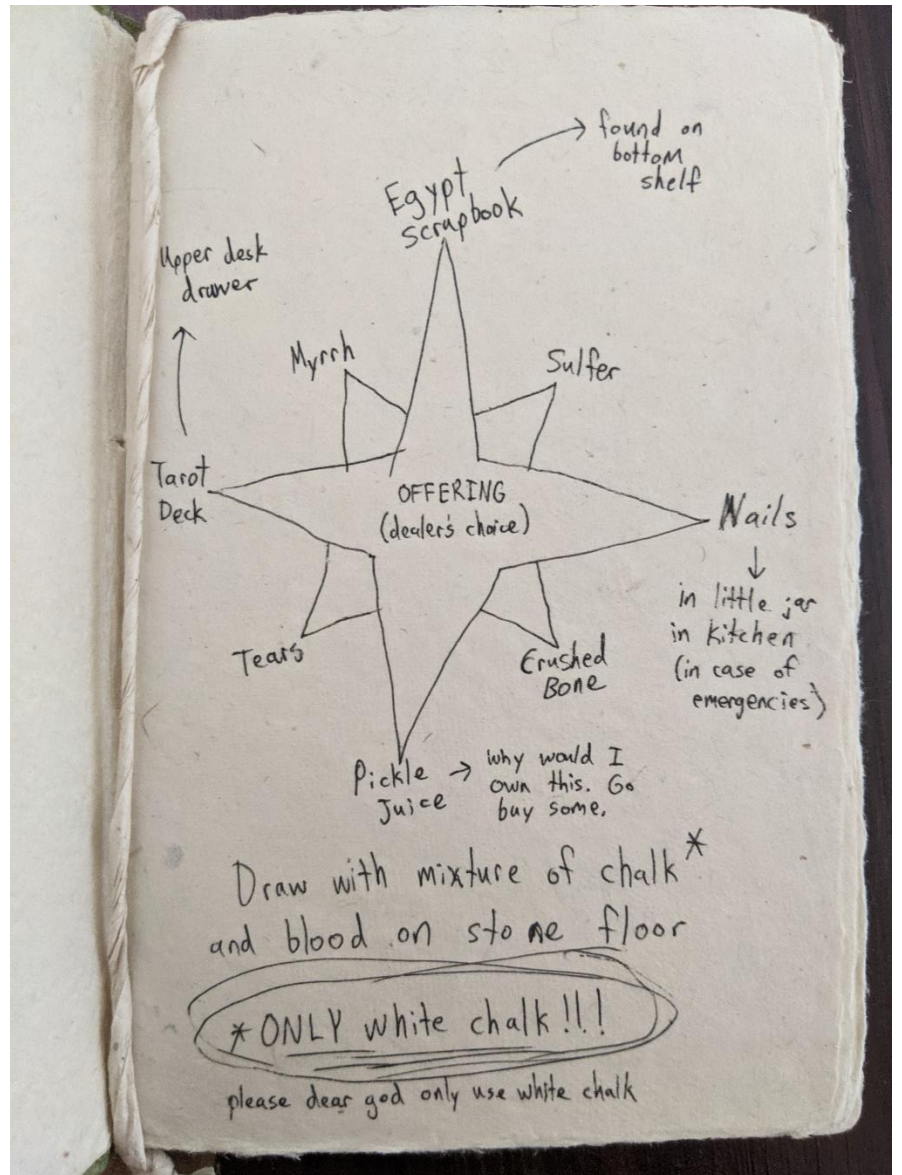 found on
bottom
shelf
Egypt
scrapbook
Upper desk
drawer
Myrrh
Sulfer
Tarot
Deck
OFFERING
(dealer's choice)
Nails
in little jar
in kitchen
(in case of
emergencies)
Tears
Crushed
Bone
Pickle
Juice
why would I
own this. Go
buy some.
Draw with mixture of chalk*
and blood on stone floor
*ONLY white chalk!!!
please dear god only use white chalk